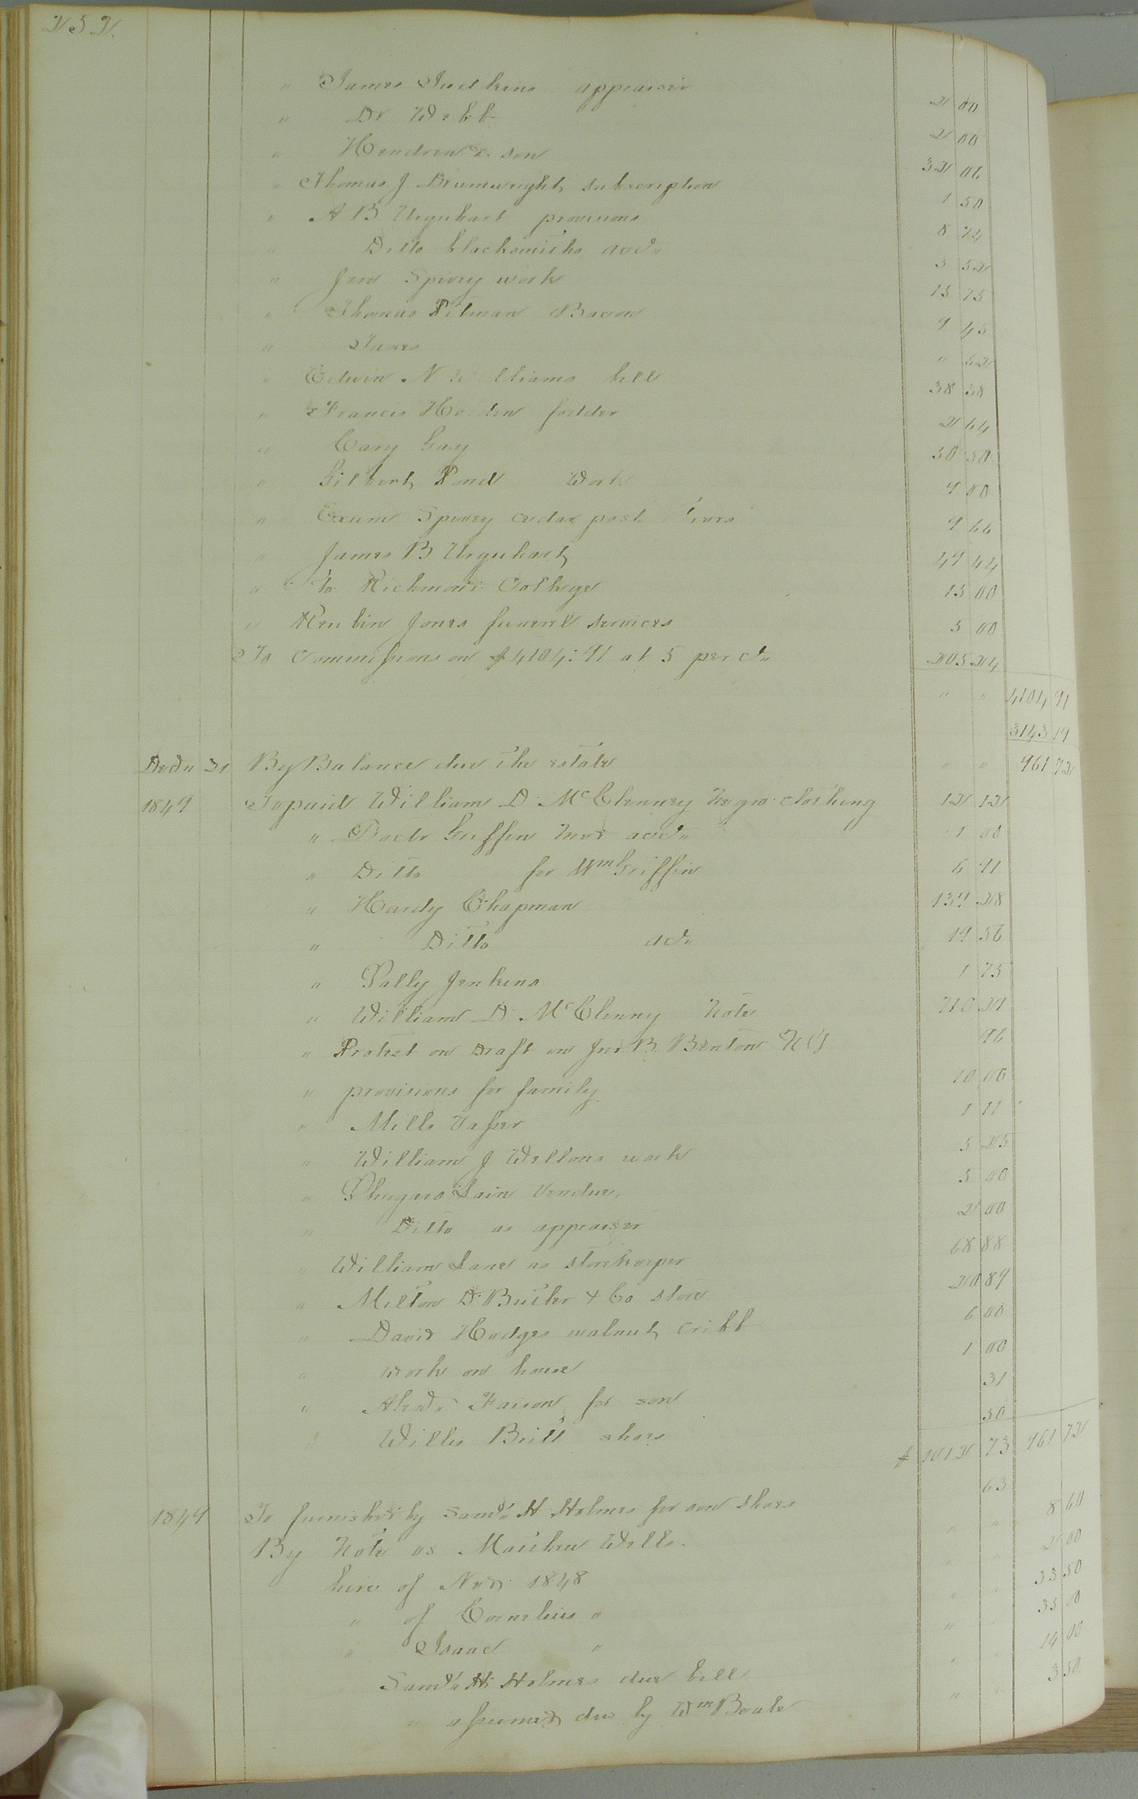 252.
" James Judkins appraiser 2 00
" Dr Webb 2 00
" Hendren & son 32 06
" Thomas J Brumwright subscription 1 50
" A B Urquhart provisions 8 74
" Ditto blacksmiths acct 3 52
" Jno Spivey work 15 75
" Thomas Pitman Bacon 9 45
" Taxes " 62
" Edwin N Williams bill 38 38
" Francis Holden fodder 2 64
" Cary Gay 30 50
" Gilbert Pond Work 9 00
" Exum Spivey cedar post 9 66
" James B Urquhart 49 44
" To Richmond College 15 00
" Reubin Jones funeral services 5 00
To Commissions on $4104:91 at 5 per ct 205 24
" " 4104 91
3143 19
Decr 31 By Balance due the estate " " 961 72
1849 To paid William D McClenney Negro clothing 12 12
" Doctr Griffin Med acct 1 00
" Ditto for Wm Griffin 6 91
" Hardy Chapman 139 28
" Ditto acct 19 56
" Sally Jenkins 1 75
" William D McClenny Note 710 21
" Protest on Draft on Jno B Benton 96
" provisions for family 10 06
" Mills 1 11
" William J Wellons work 5 25
" Lain Vendue 5 00
" Ditto as appraiser 2 00
" William Lane as storekeeper 68 88
" Milton D Butler & Co store 20 89
" David Hodges walnut cribb 6 00
" work on house 1 00
" Faison for son 31
" Willis Britt shoes 50
$ 1012 73 961 72
1849 To furnished by Saml H Holmes for son shoes 63
By Note as Matthew Wills " " 8 60
hire of Ned 1848 " " 2 00
" of Cornelius " " 33 50
" Isaac " " 35 00
Saml H Holmes due bill " " 14 00
" assumed due by Wm Beale " " 3 50